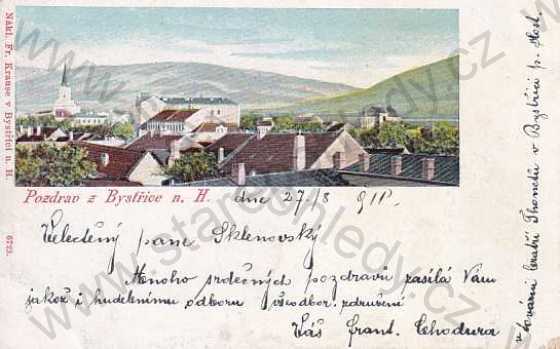 Nákl. Fr. Krause v Bystřici n. H.
6723.
Pozdrav z Bystřice n. H. dne 27/8 911.
Velectěný pane Sklenovský
Mnoho srdečných pozdravů zasílá Vám
jakož i hudebnímu odboru všeodbor. združení
Váš Frant. Chodura
v továrni bratří Thonetů v Bystřici p. Host.
www.stareohledy.cz